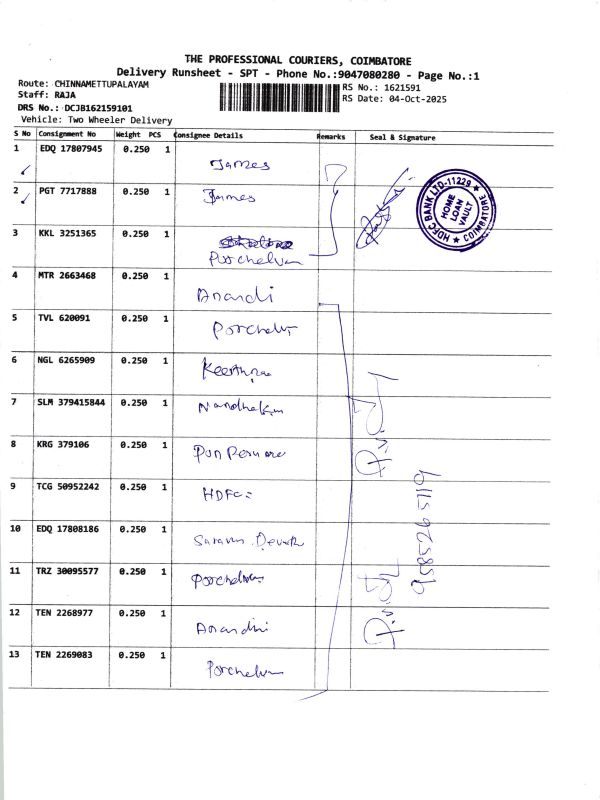 THE PROFESSIONAL COURIERS, COIMBATORE
Delivery Runsheet - SPT - Phone No.:9047080280 - Page No.:1
Route: CHINNAMETTUPALAYAM
Staff: RAJA
DRS No.: DCJB162159101
Vehicle: Two Wheeler Delivery
RS No.: 1621591
RS Date: 04-Oct-2025
S No Consignment No Weight PCS Consignee Details Remarks Seal & Signature
1 EDQ 17807945 0.250 1 James
2 PGT 7717888 0.250 1 James
3 KKL 3251365 0.250 1 Porchelvan
HDFC BANK LTD-11229 ★ COIMBATORE ★
HOME LOAN VAULT
4 MTR 2663468 0.250 1 Anandi
5 TVL 620091 0.250 1 Porchelvi
6 NGL 6265909 0.250 1 Keerthna
7 SLM 379415844 0.250 1
8 KRG 379106 0.250 1 Pon
9 TCG 50952242 0.250 1 HDFC
10 EDQ 17808186 0.250 1
11 TRZ 30095577 0.250 1 Porchelvan
12 TEN 2268977 0.250 1 Anandhi
13 TEN 2269083 0.250 1 Porchelvan
9585265119